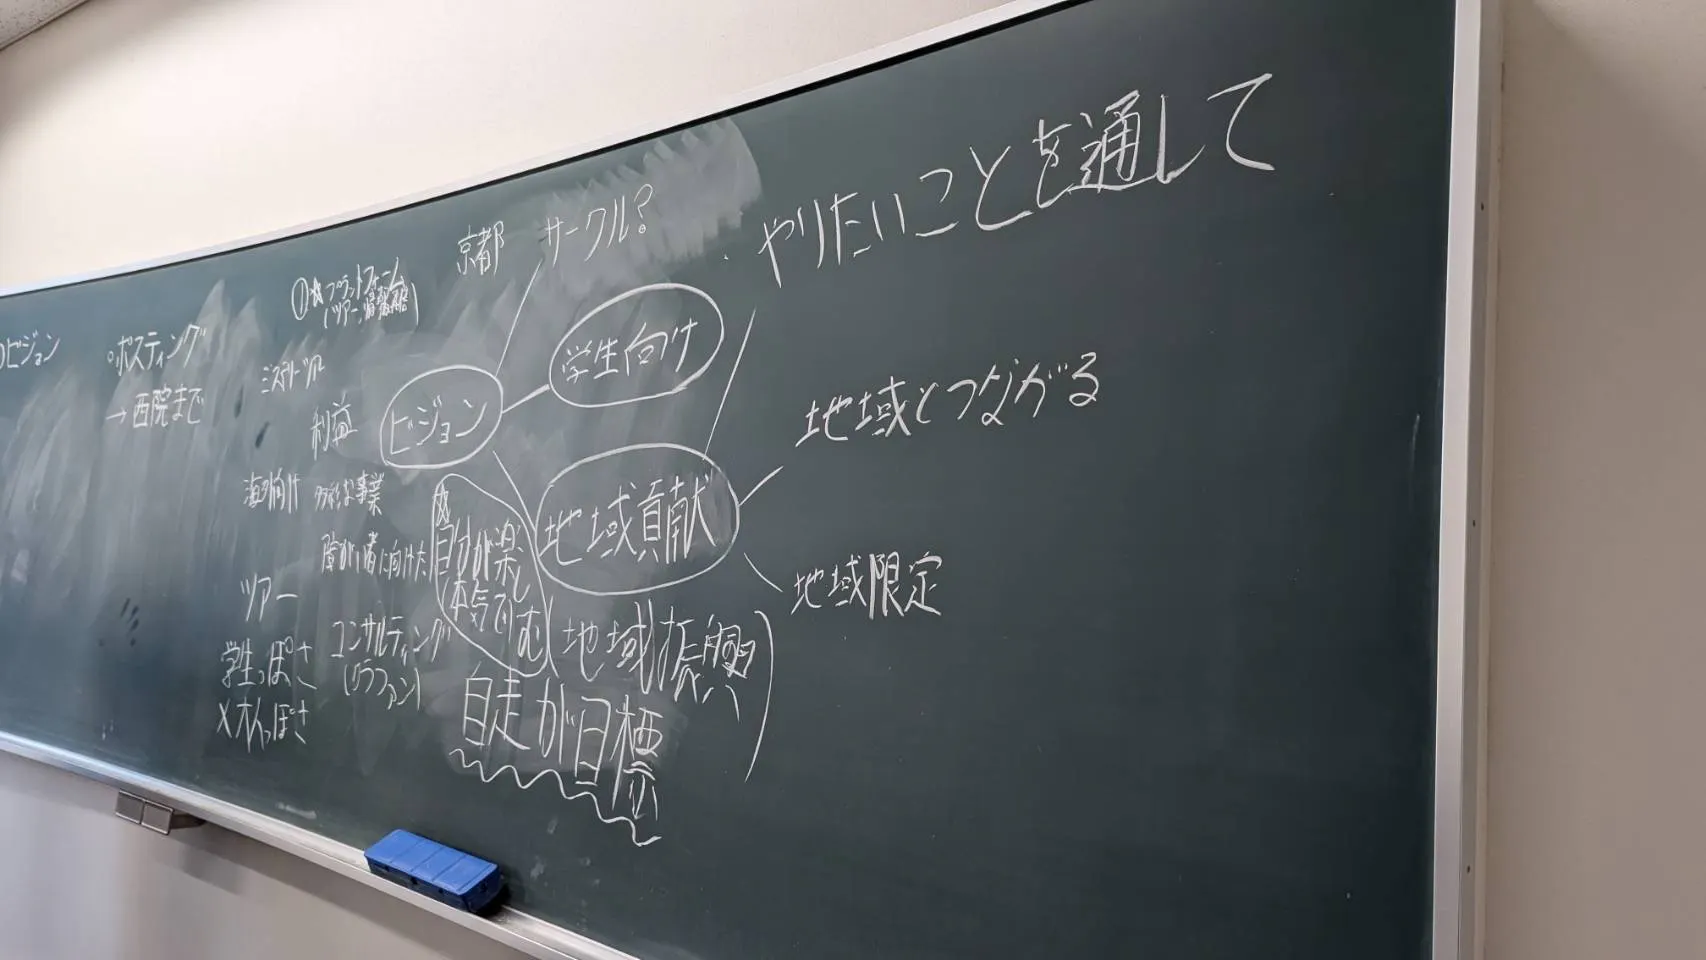 ビジョン
。ポスティング
→西院まで
①☆プラットフォーム
(ツアー、情報発信)
京都 サークル?
ミステリーツアー
利益
ビジョン
学生向け
・やりたいことを通して
海外向け
多様な事業
障がい者に向けた
☆自分が楽しむ
本気で
地域貢献
地域とつながる
地域限定
(地域振興)
ツアー
学生っぽさ
×大人っぽさ
コンサルティング
(クラファン)
自走が目標